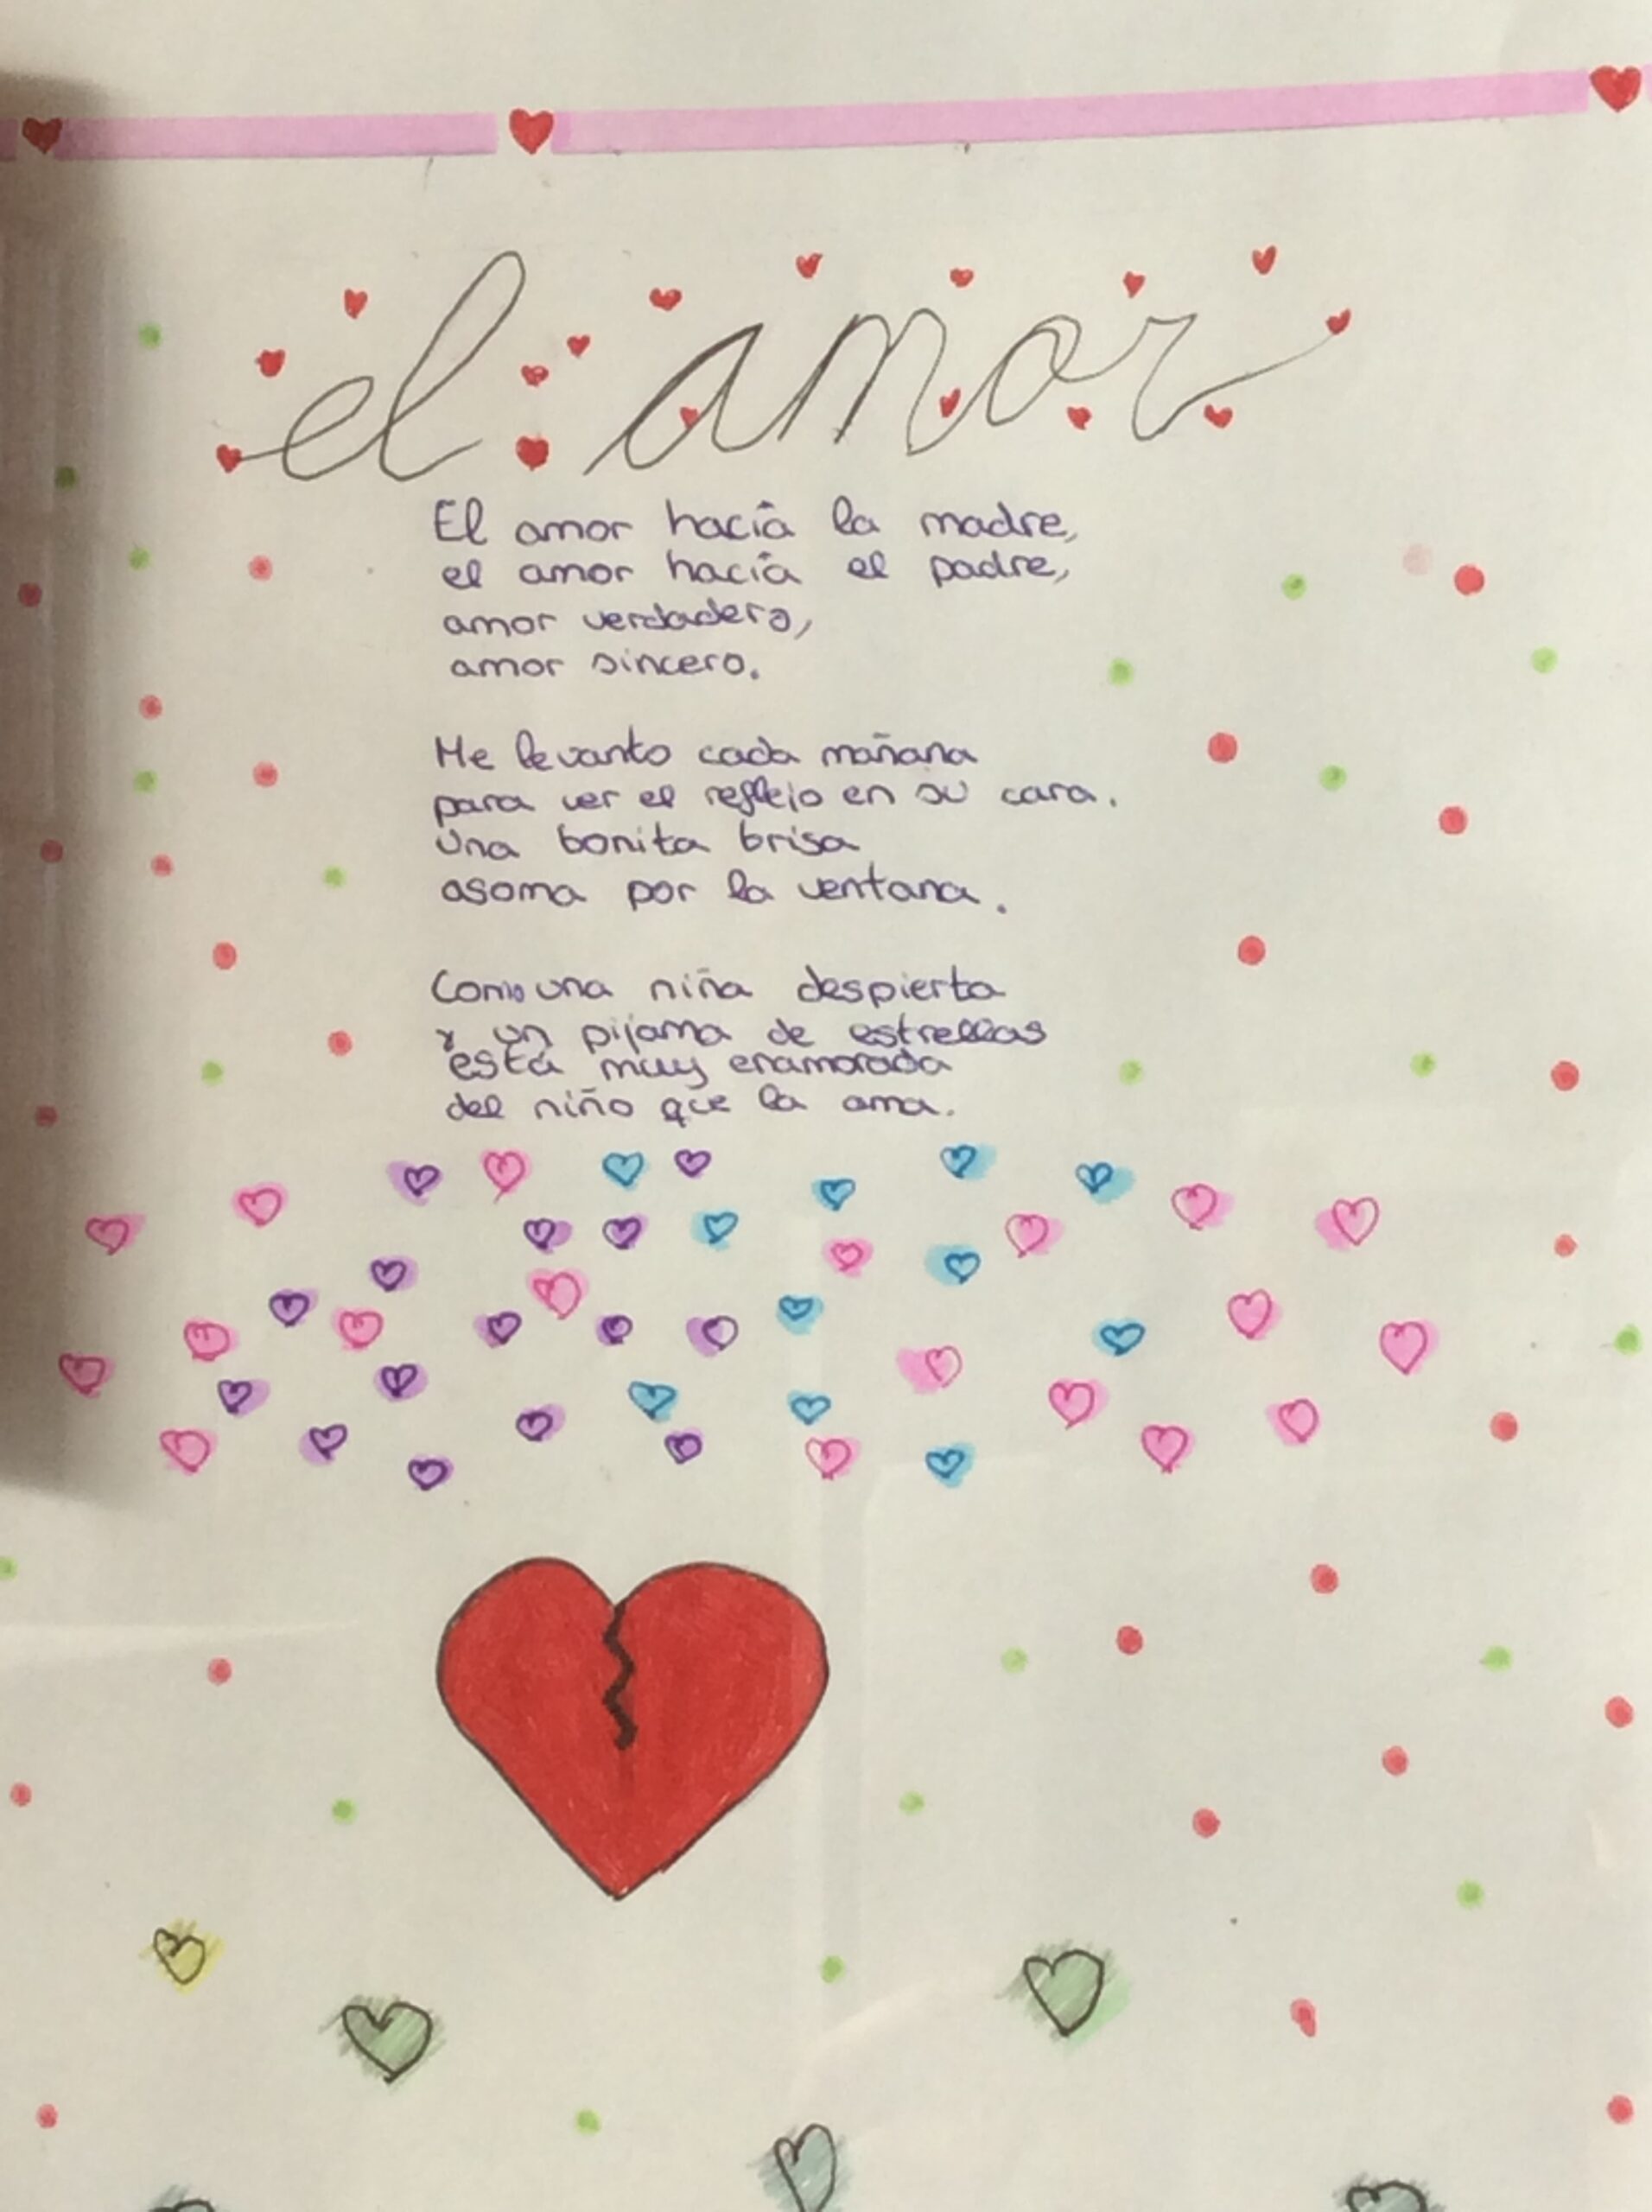 el amor
El amor hacia la madre,
el amor hacia el padre,
amor verdadero,
amor sincero.
Me levanto cada mañana
para ver el reflejo en su cara.
Una bonita brisa
asoma por la ventana.
Como una niña despierta
y un pijama de estrellas
está muy enamorada
del niño que la ama.